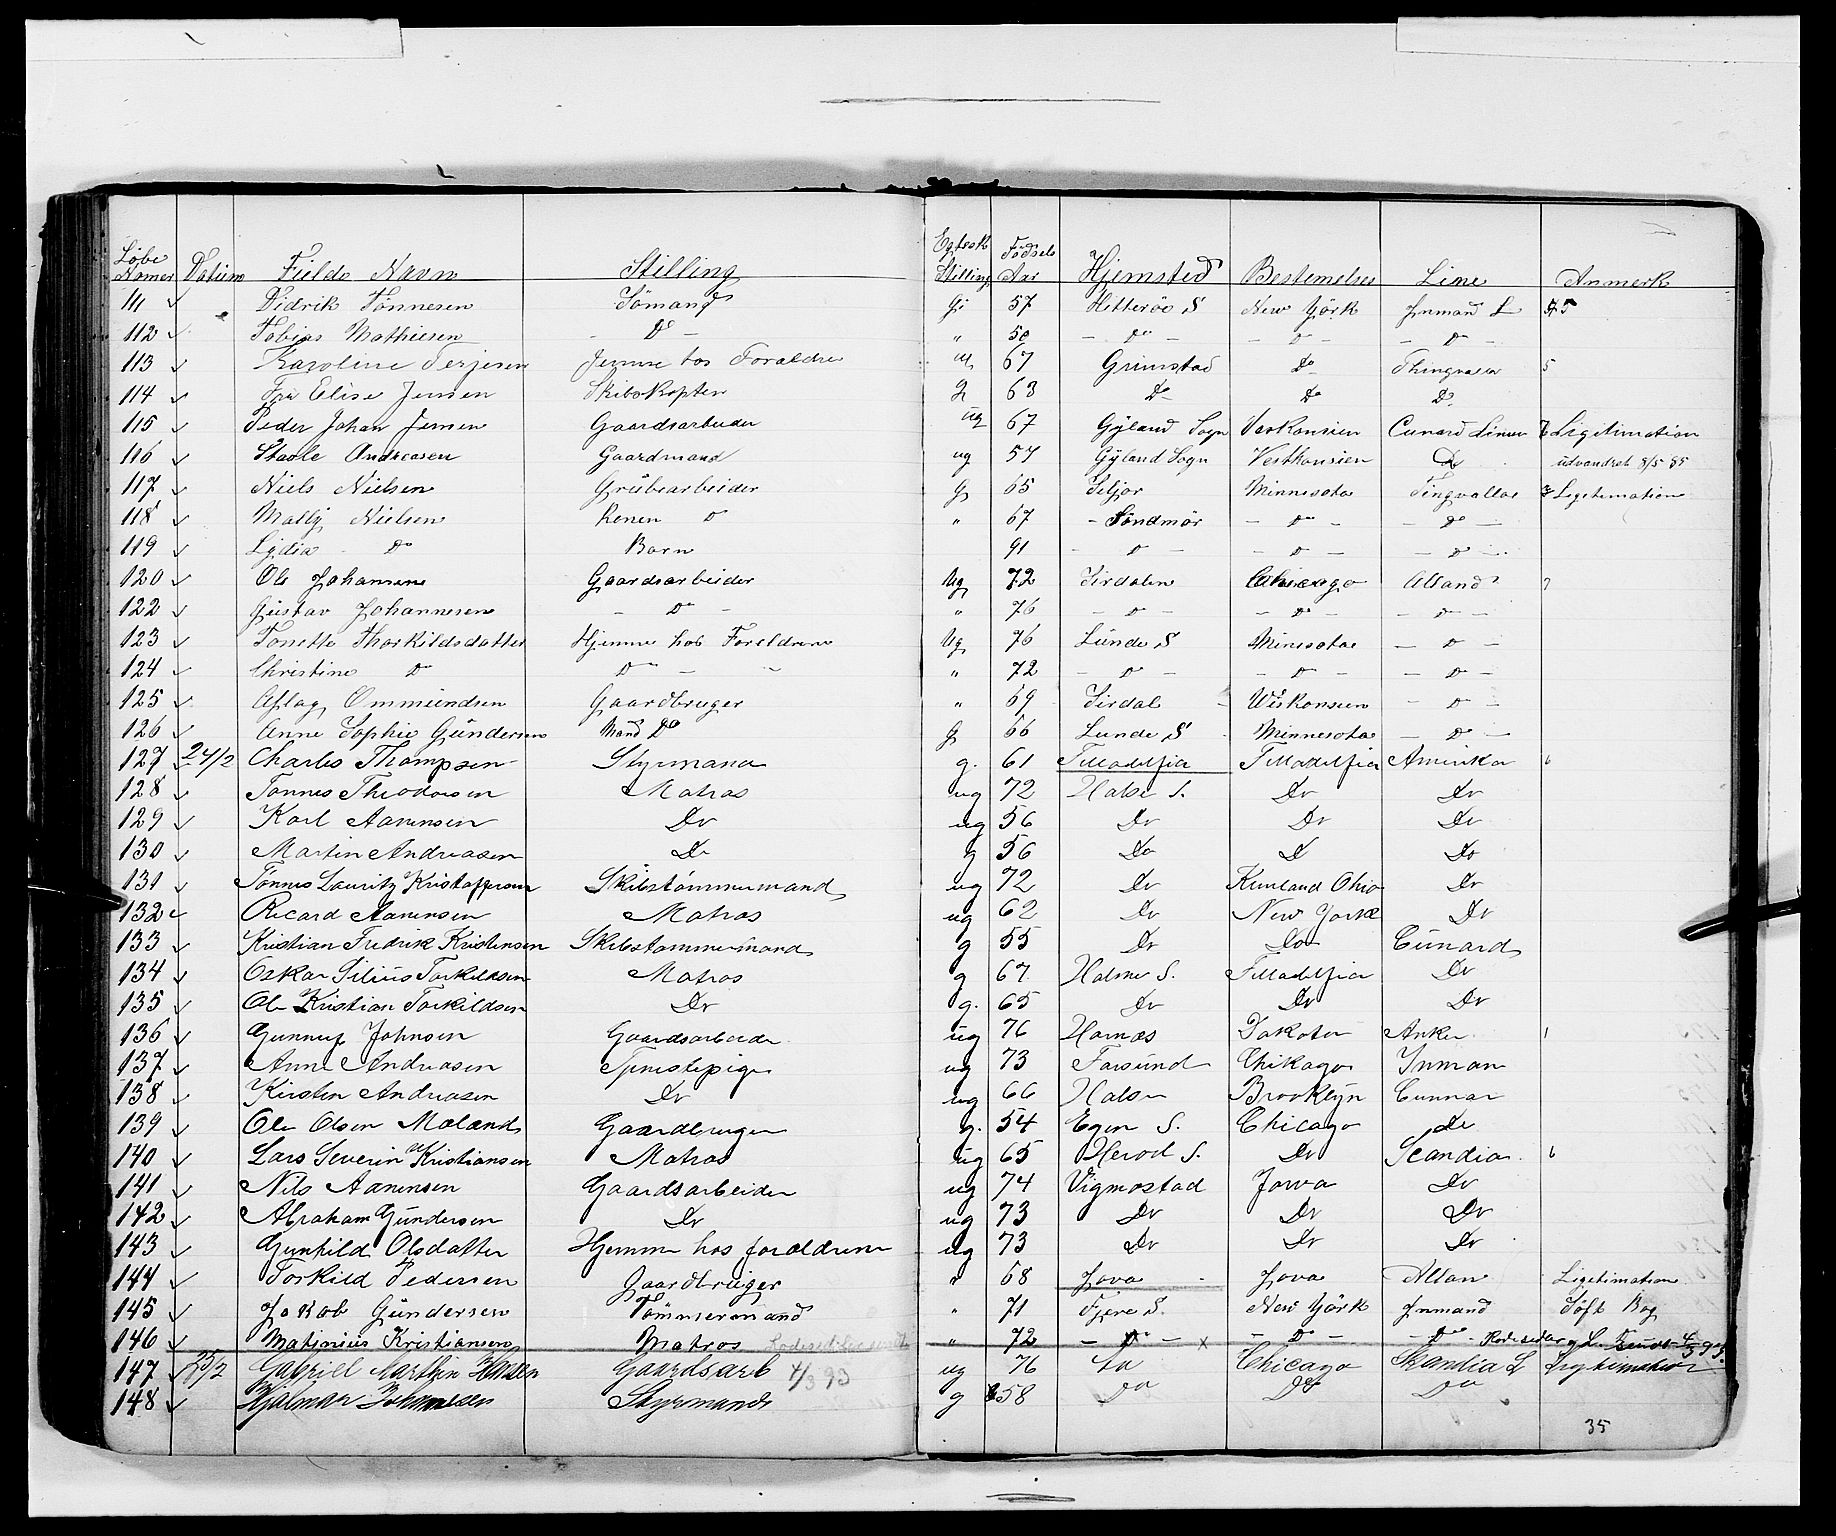 Løbe Nomer Datum Fulde Navn Stilling Egtesk Stilling Fødsels Aar Hjemsted Bestemelses Linie Anmerk
111 Didrik Tönnesen Sömand g 57 Hitteröe S New Yörk Inmand L 5
112 Tobias Mathiesen - Do - " 50 - Do - - Do - - Do -
113 Karoline Terjesen Jemme hos Foraldre 67 Grimstad Do Thingvalla 5
114 Elise Jensen Skibskapten g 63 Do Do Do
115 Peder Johan Jensen Gaardsarbeider ug 67 Gyland Sogn Veskonsien Cunard Linien Legitimation
116 Staale Andreasen Gaardmand ug 57 Gyland Sogn Vestkonsien Do udvandret 8/5 95
117 Niels Nielsen Grübearbeider G 65 Seljor Minnesota Tingvalla Legitimation
118 Mally Nielsen Konen Do " 67 - Söndmör - Do - - Do -
119 Lydia Do Barn 91 - Do - - Do - - Do -
120 Ole Johansen Gaardsarbeider Ug 72 Sirdalen Chicago Alland 7
122 Gustav Johannesen - Do - " 76 - Do - - Do - - Do -
123 Tonette Thorkildsdatter Hjemme hos Foreldrene Ug 76 Lünde S Minesota - Do -
124 Christine Do Do - " 72 - Do - - Do - - Do -
125 Aslag Ommündsen Gaardbruger " 69 Sirdal Wiskonsien - Do -
126 Anne Sophie Gündersen Mand Do G 66 Lunde S Minnesota - Do -
127 24/2 Charles Thompsen Styrmand g. 61 Filladelfia Filladelfia Amirika 6
128 Tønnes Theodorsen Matros ug 72 Halse S. Do Do
129 Karl Aanensen Do ug 56 Do Do Do
130 Martin Andreasen Do g 56 Do D Do
131 Tønnes Lauritz Kristoffersen Skibstømmermand ug 72 Do Ohio Do
132 Ricard Aanensen Matros ug 62 Do New York Do
133 Kristian Fredrik Kristensen Skibstømmermand g 55 Do Do Cünard
134 Oskar Silius Torkildsen Matros g 67 Halse S. Filladelfia Do
135 Ole Kristian Torkildsen Do g. 65 Do Do Do
136 Gunnuf Johnsen Gaardsarbeider üg 76 Dakota Anker 1
137 Anne Andreasen Tjenistepige ug 73 Farsünd Chikago Inman
138 Kirsten Andreasen Do ug 66 Halse Brooklyn Cunnar
139 Ole Olsen Maland Gaardbruger g. 54 Egen S. Chicago do
140 Lars Severin Kristiansen Matros ug 65 Herod S. Do Scandia 6
141 Nils Aanensen Gaardsarbeider ug 74 Vigmostad Jowa Do
142 Abraham Gündersen Do ug 73 Do Do Do
143 Gunhild Olsdatter Hjemme hos foraldrene ug 73 Do Do Do
144 Torkild Pedersen Gaardbruiger " 68 Jova Jova Allan Legitimation
145 Jakob Gündersen Tömmermand " 71 Fjere S. New Yörk Inmand Söft Bog
146 Matinius Kristiansen Matros " 72 - Do - x - Do - - Do -
147 25/2 Gabriel Marthin Hansen Gaardsarb 4/3 93 ug 76 Do Chicago Skandia L Legitimation
148 Hjalmar Johannesen Styrmand g 58 Do Do Do
35